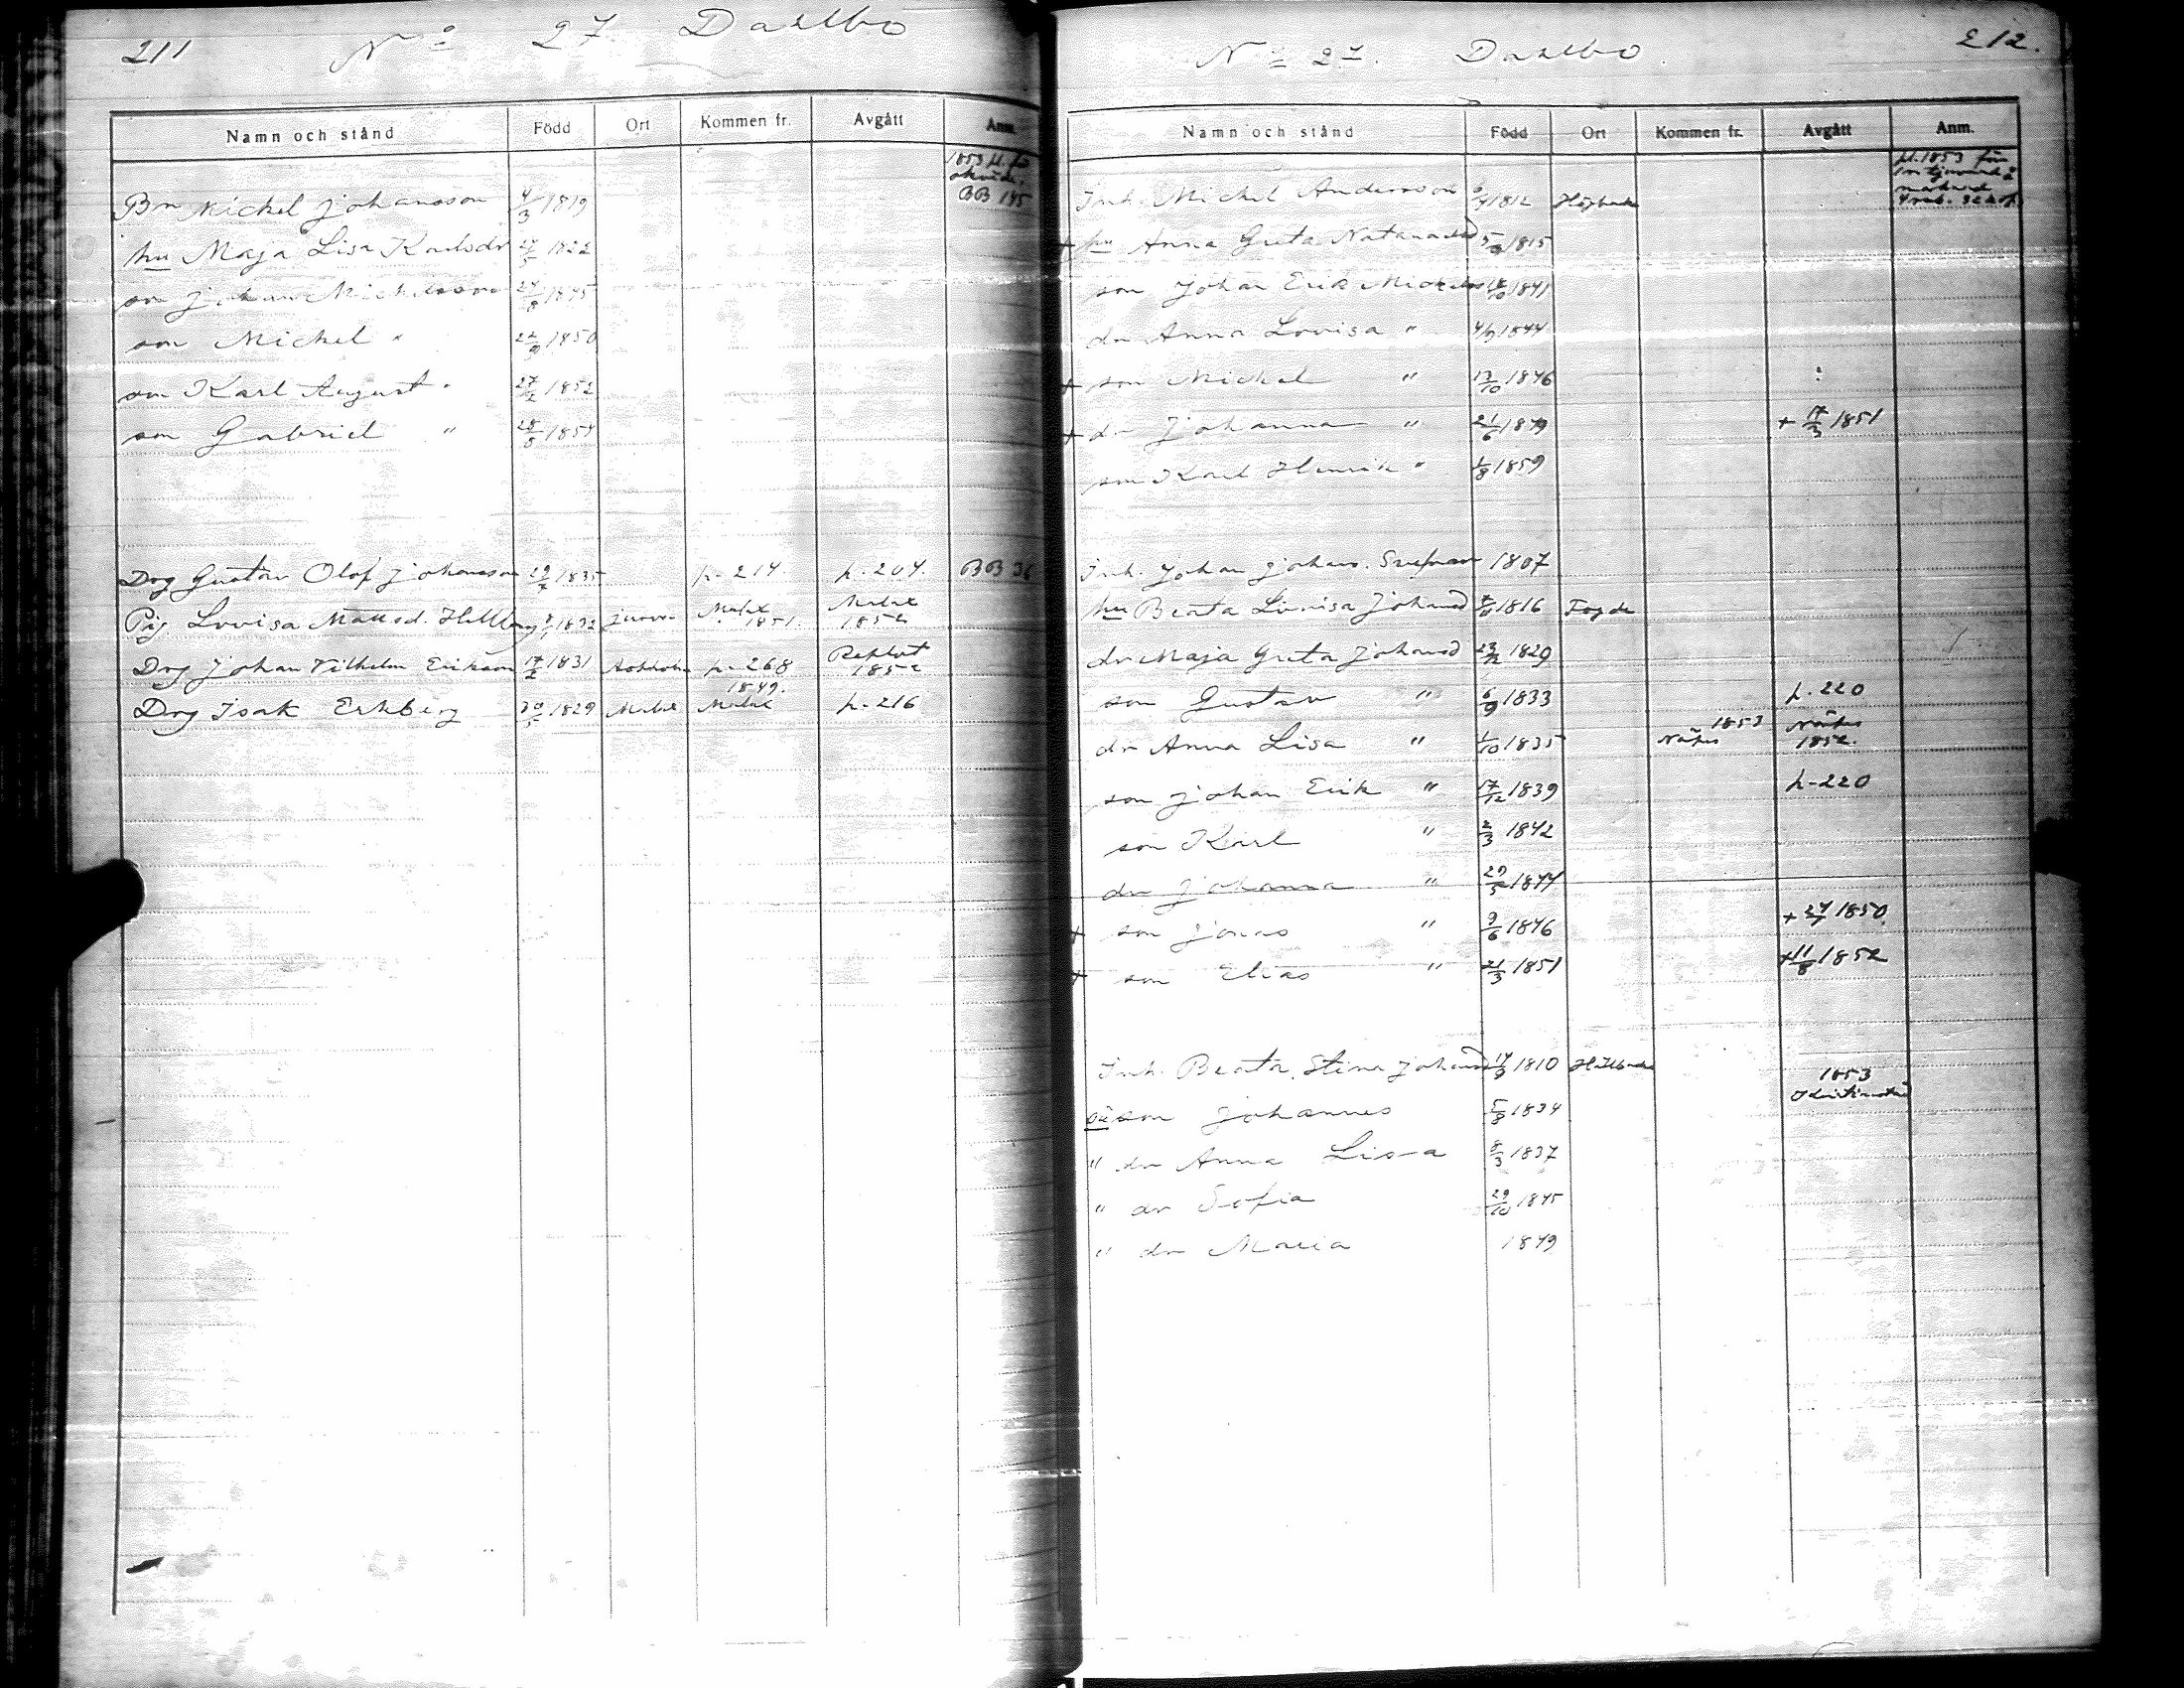 211
No 27 Dahlbo
Namn och stånd Född Ort Kommen fr. Avgått Anm.
1853
BB 145
Bn Michel Johansson 4/3 1819
hu Maja Lisa Karlsdr 1822
son Johan Michelsson 24/8 1845
son Michel " 22/9 1850
son Karl August " 27/2 1852
son Gabriel " 1854
Drg Gustav Olof Johansson 29/7 1835 p. 214. p. 204. BB 36
Pig. Lovisa Mattsd. Hellberg 1832 Malax 1851. Malax 1852
Drg Johan Vilhelm Erikson 17/2 1831 p. 268 Replot 1852
Drg Isak Ekberg 1829 Malax 1849. Malax p. 216
212.
No 27. Dahlbo
Namn och stånd Född Ort Kommen fr. Avgått Anm.
fl. 1853 för
Inh. Michel Andersson 1812 Högback
+ hu Anna Greta 1815
son Johan Erik 1841
dr Anna Lovisa " 4/9 1844
+ son Michel " 13/10 1846
+ dr Johanna " 21/6 1849 + 17/3 1851
son Karl Henrik " 1/8 1859
Inh. Johan Johans. 1807
hu Beata Lovisa Johansd 1816 Fogde
dr Maja Greta Johansd 23/12 1829
son Gustav " 6/9 1833 p. 220
dr Anna Lisa " 1/10 1835 1853 Närpes Närpes 1852.
son Johan Erik " 17/12 1839 p. 220
son Karl " 2/3 1842
dr Johanna " 29/5 1844
+ son Jonas " 9/6 1846 + 1850.
+ son Elias " 21/3 1851 + 11/8 1852
Inh. Beata Stina Johansd 1810 1853
oä son Johannes 5/8 1834
" dr Anna Lisa 8/3 1837
" dr Sofia 29/10 1845
" dr Maria 1849